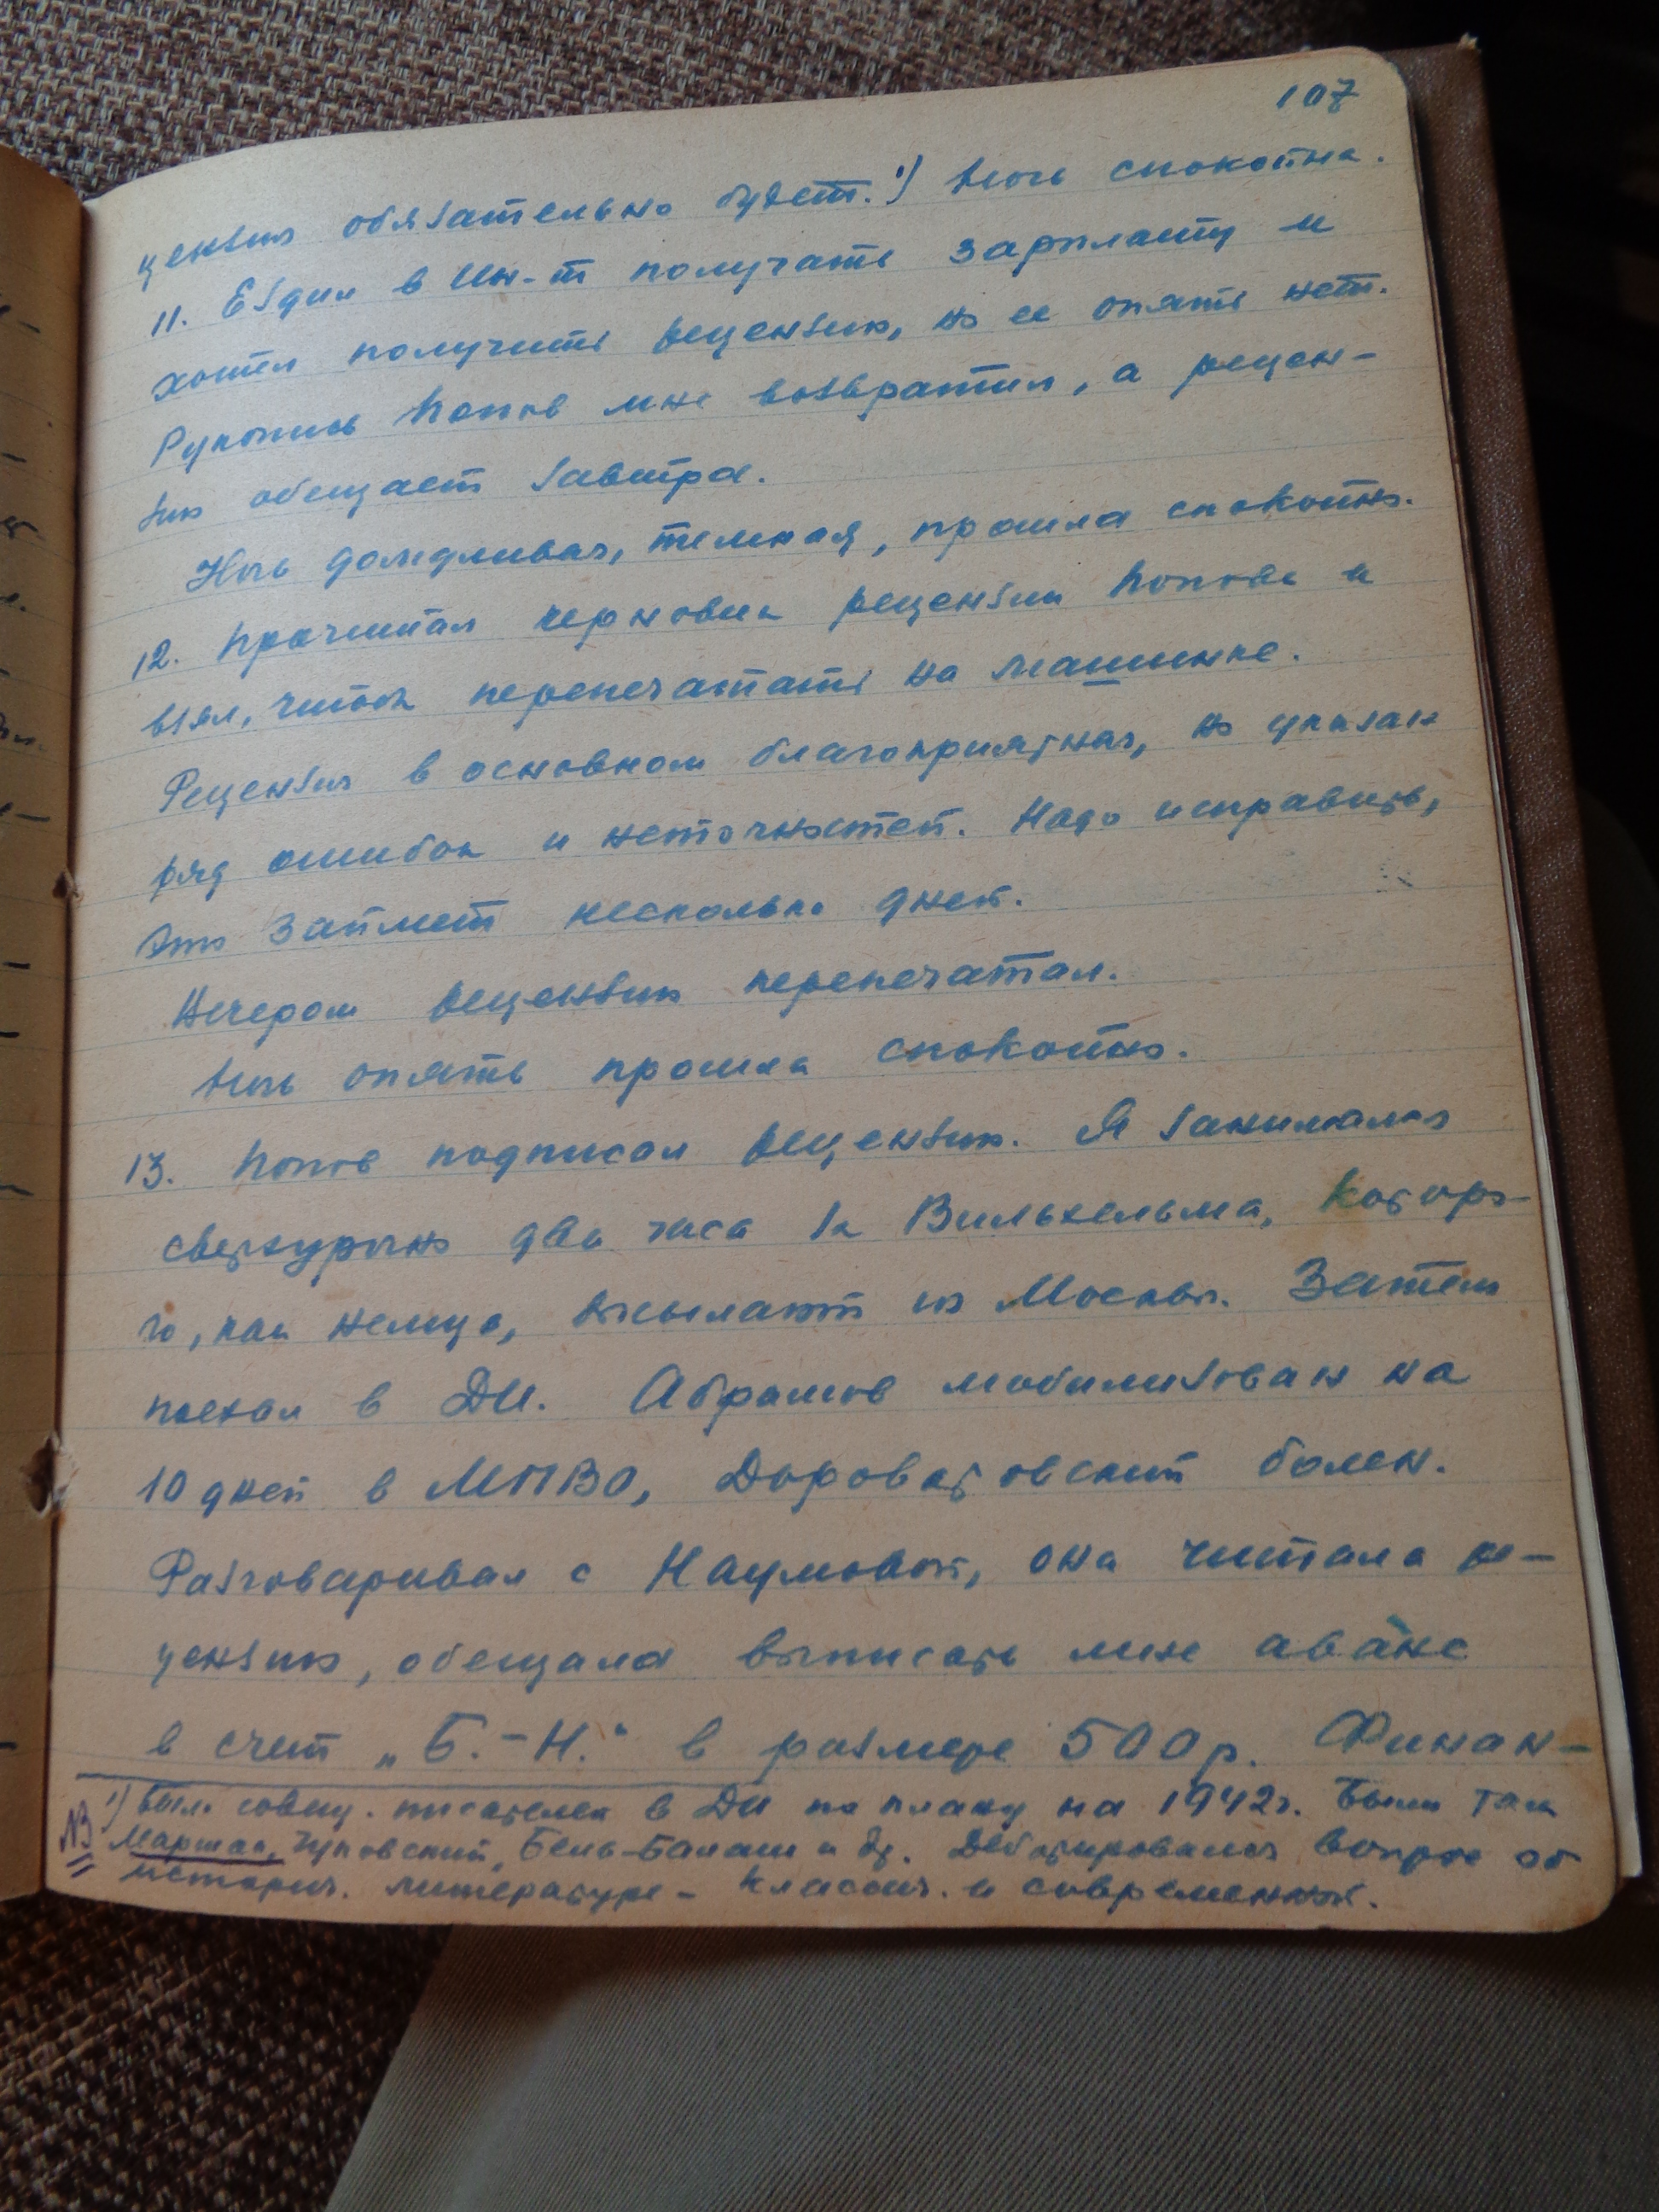 107
цензия обязательно будет.¹) Ночь спокойна.
11. Ездил в Ин-т получать зарплату и
хотел получить рецензию, но ее опять нет.
Рукопись Попов мне возвратил, а рецен-
зию обещает завтра.
Ночь дождливая, темная, прошла спокойно.
12. Прочитал черновик рецензии Попова и
взял, чтобы перепечатать на машинке.
Рецензия в основном благоприятная, но указан
ряд ошибок и неточностей. Надо исправить,
это займет несколько дней.
Вечером рецензию перепечатал.
Ночь опять прошла спокойно.
13. Попов подписал рецензию. Я занимался
сверхурочно два часа за Вильгельма, которо-
го, как немца, высылают из Москвы. Затем
поехал в ДИ. Абрамов мобилизован на
10 дней в МПВО, Дороватовский болен.
Разговаривал с Наумовой, она читала ре-
цензию, обещала выписать мне аванс
в счет „Б.-Н." в размере 500 р. Финан-
¹) Было совещ. писателей в ДИ по плану на 1942 г. Были там
NB Маршак, Чуковский, Бела-Балаш и др. Дебатировался вопрос об
историч. литературе – классич. и современной.